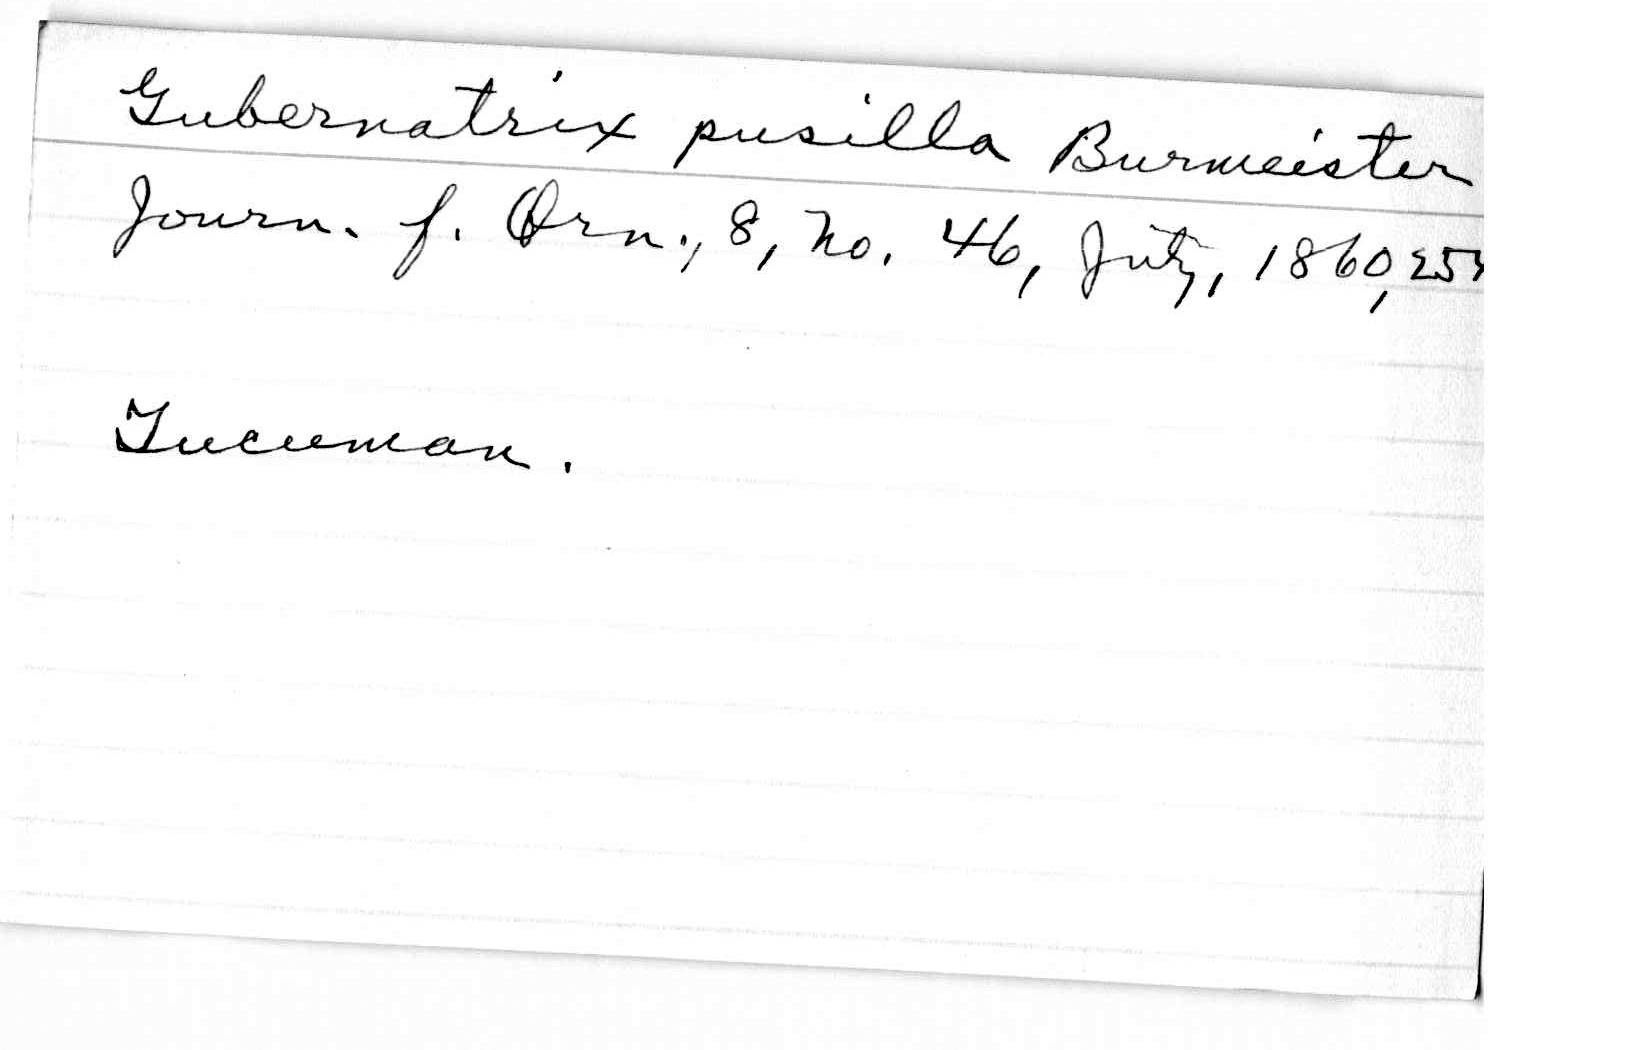 Gubernatrix pusilla Burmeister
Journ. f. Orn., 8, No. 46, July, 1860,
Tucuman.